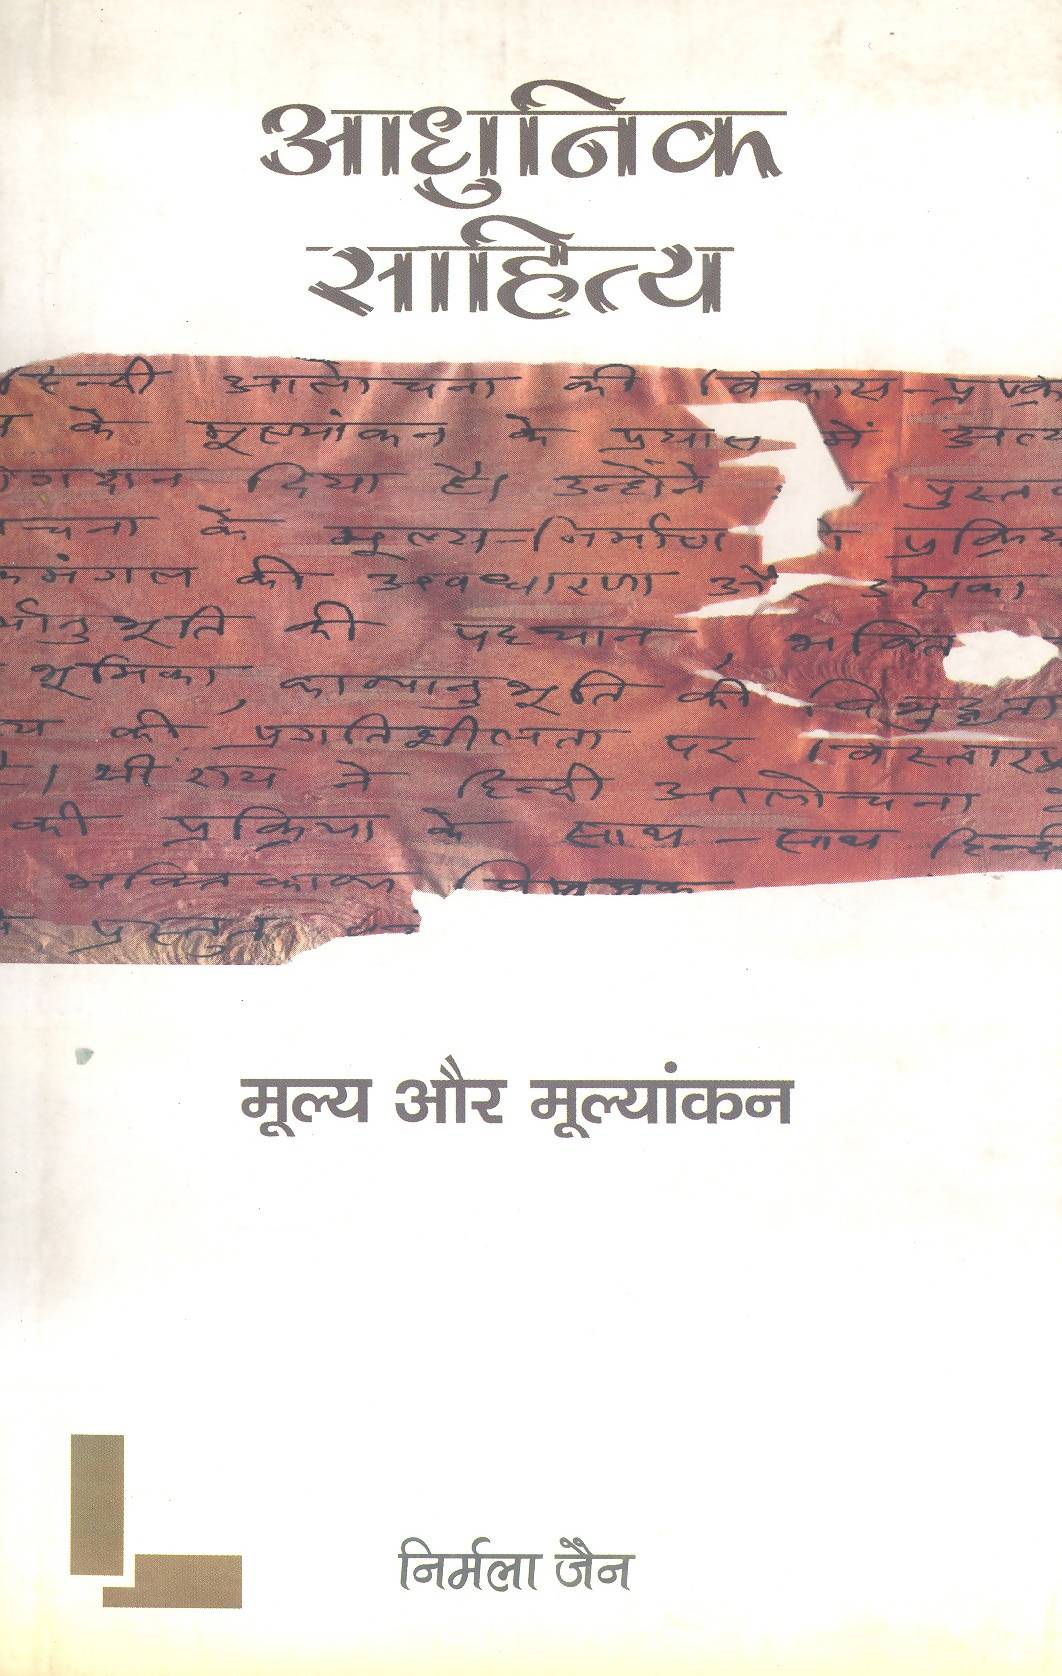 आधुनिक
साहित्य
हिन्दी आलोचना की विकास-प्रक्रि
के मूल्यांकन के प्रयास में अत्य
ोगदान दिया है। उन्होंने पुस्त
चना के मूल्य-निर्माण प्रक्रिय
कमंगल की अवधारणा और उसका
र्मानुभूति की पहचान, भक्ति
भूमिका, काव्यानुभूति की
त्य की प्रगतिशीलता पर विस्तार
है। श्री राय ने हिन्दी आलोचना
की प्रक्रिया के साथ-साथ हिन्दी
भक्तिकाव्य विषयक
प्रस्तुत
मूल्य और मूल्यांकन
निर्मला जैन